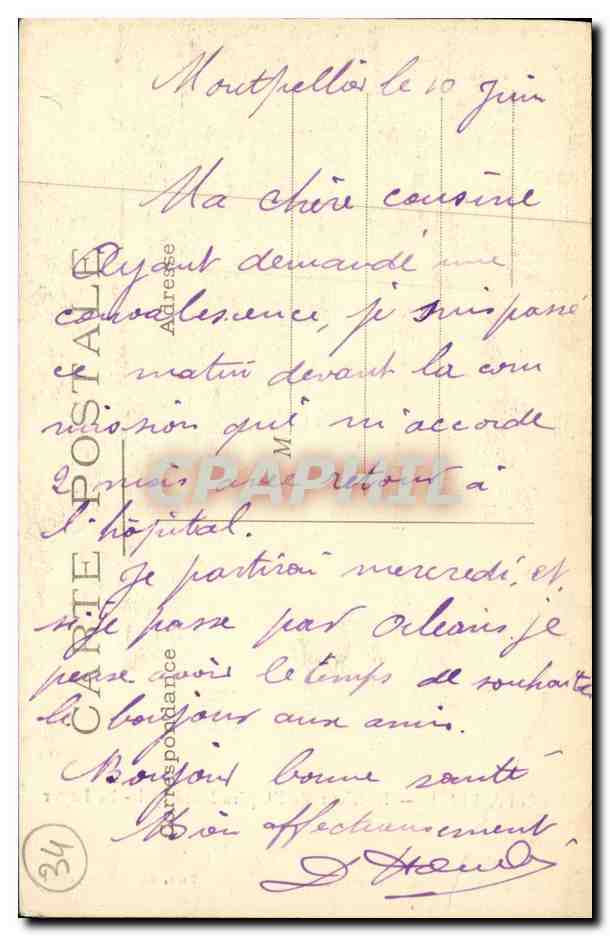 Montpellier le 10 Juin
Ma chère cousine
Ayant demandé une
convalescence, je suis passé
ce matin devant la com
mission qui m'accorde
2 mois avec retour à
l'hôpital.
Je partirai mercredi, et
si je passe par Orléans je
pense avoir le temps de souhaiter
le bonjour aux amis.
Bonjour bonne santé
Bien affectueusement
CARTE POSTALE
Correspondance
Adresse
M
CPAPHIL
34